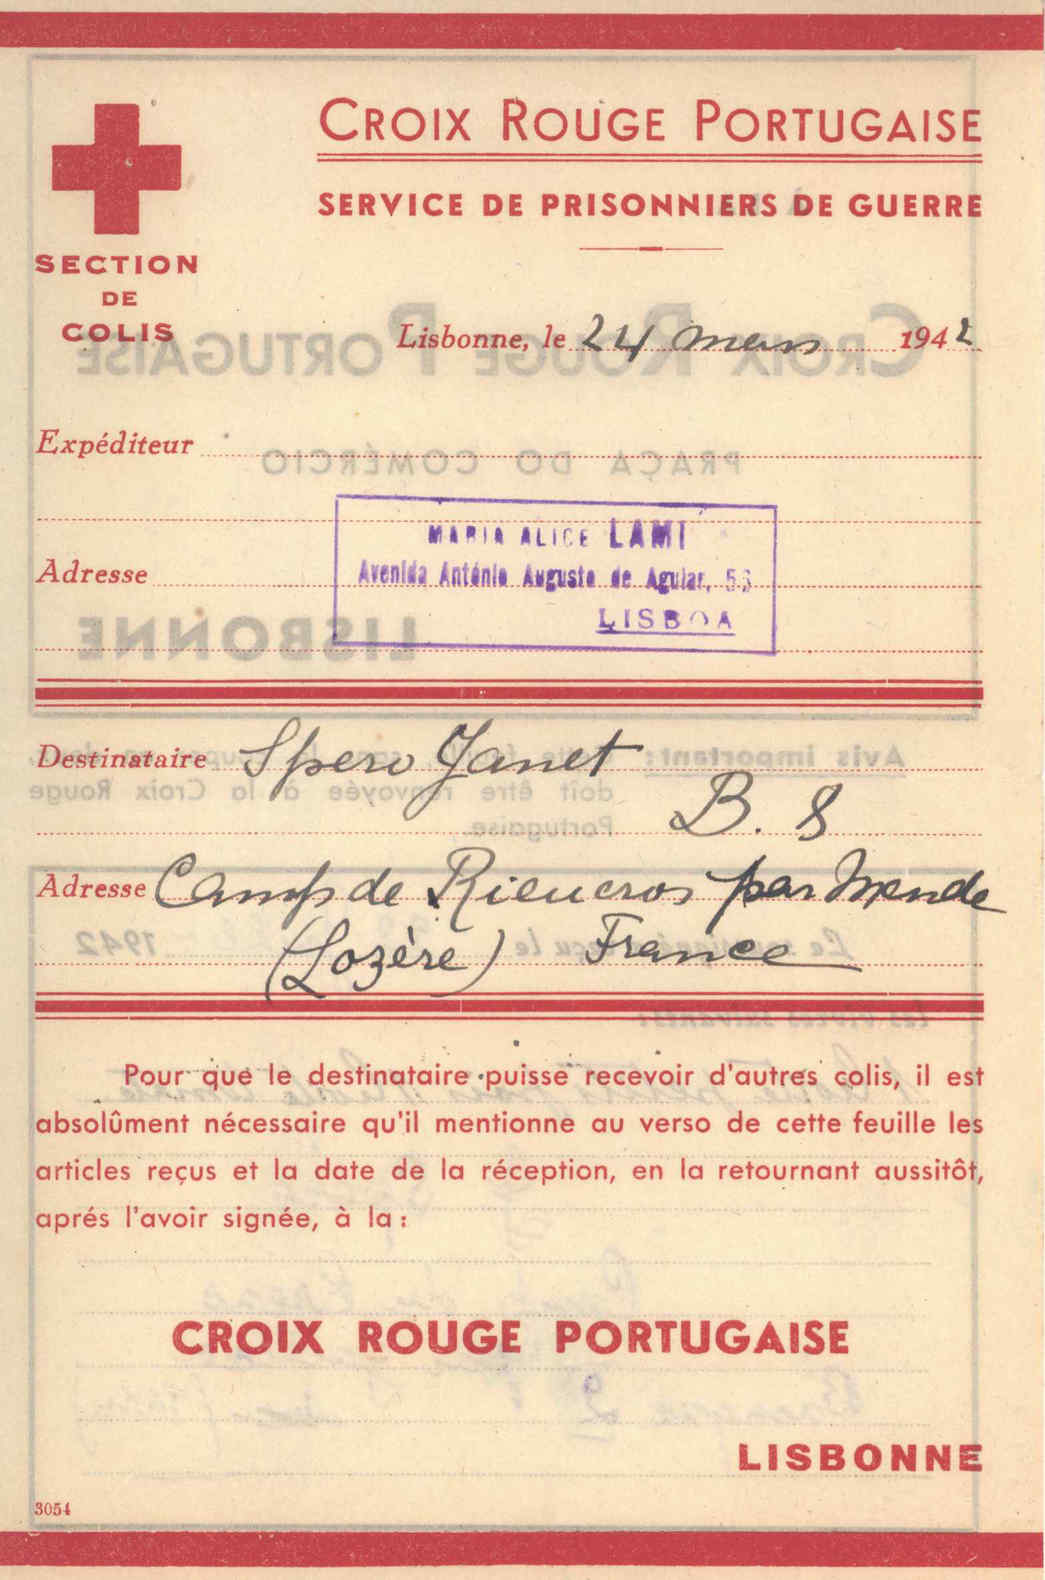 CROIX ROUGE PORTUGAISE
SERVICE DE PRISONNIERS DE GUERRE
SECTION
DE
COLIS
Lisbonne, le 24 mars 1942
Expéditeur
MARIA ALICE LAMI
Adresse
Avenida António Augusto de Aguiar, 56
LISBOA
Destinataire Spero Janet
B. 8
Adresse Camp de Rieucros par Mende
(Lozère) France
Pour que le destinataire puisse recevoir d'autres colis, il est
absolûment nécessaire qu'il mentionne au verso de cette feuille les
articles reçus et la date de la réception, en la retournant aussitôt,
aprés l'avoir signée, à la:
CROIX ROUGE PORTUGAISE
LISBONNE
3054
CROIX ROUGE PORTUGAISE
PRAÇA DO COMÉRCIO
LISBONNE
Avis important:
doit être renvoyée à la Croix Rouge
Portugaise.
1942